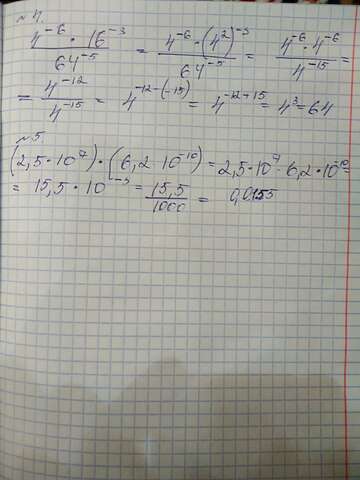 №4.
4⁻⁶ · 16⁻³ / 64⁻⁵ = 4⁻⁶ · (4²)⁻³ / 64⁻⁵ = 4⁻⁶ · 4⁻⁶ / 4⁻¹⁵ =
= 4⁻¹² / 4⁻¹⁵ = 4⁻¹²⁻⁽⁻¹⁵⁾ = 4⁻¹²⁺¹⁵ = 4³ = 64
№5
(2,5 · 10⁷) · (6,2 · 10⁻¹⁰) = 2,5 · 10⁷ · 6,2 · 10⁻¹⁰ =
= 15,5 · 10⁻³ = 15,5 / 1000 = 0,0155